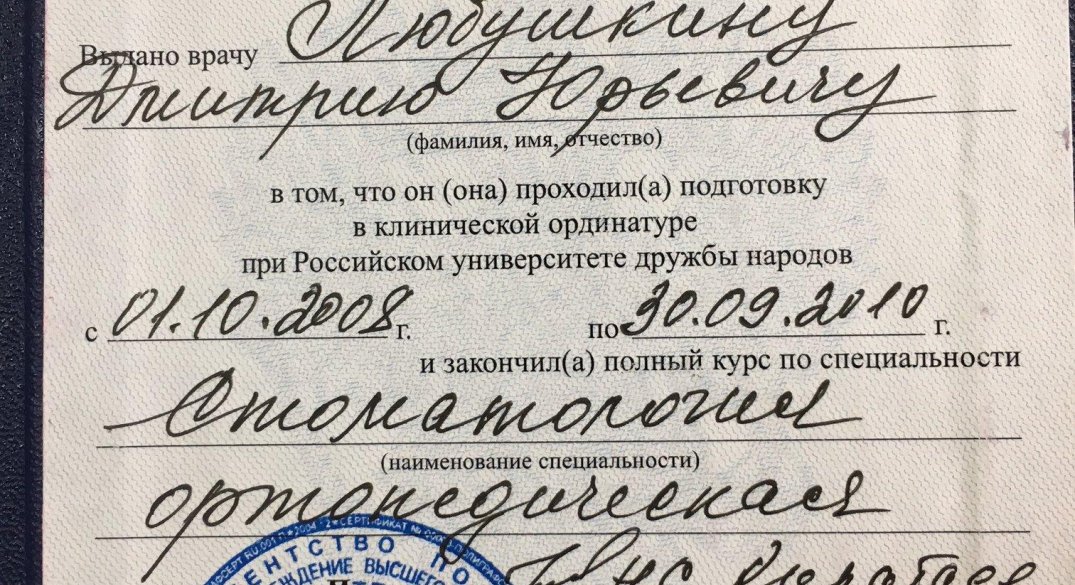 Выдано врачу Любушкину
Дмитрию Юрьевичу
(фамилия, имя, отчество)
в том, что он (она) проходил(а) подготовку
в клинической ординатуре
при Российском университете дружбы народов
с 01.10.2008 г. по 30.09.2010 г.
и закончил(а) полный курс по специальности
Стоматология
(наименование специальности)
ортопедическая
СЕРТИФИКАТ №
ЕНТСТВО ПО
ЖДЕНИЕ ВЫСШЕГО